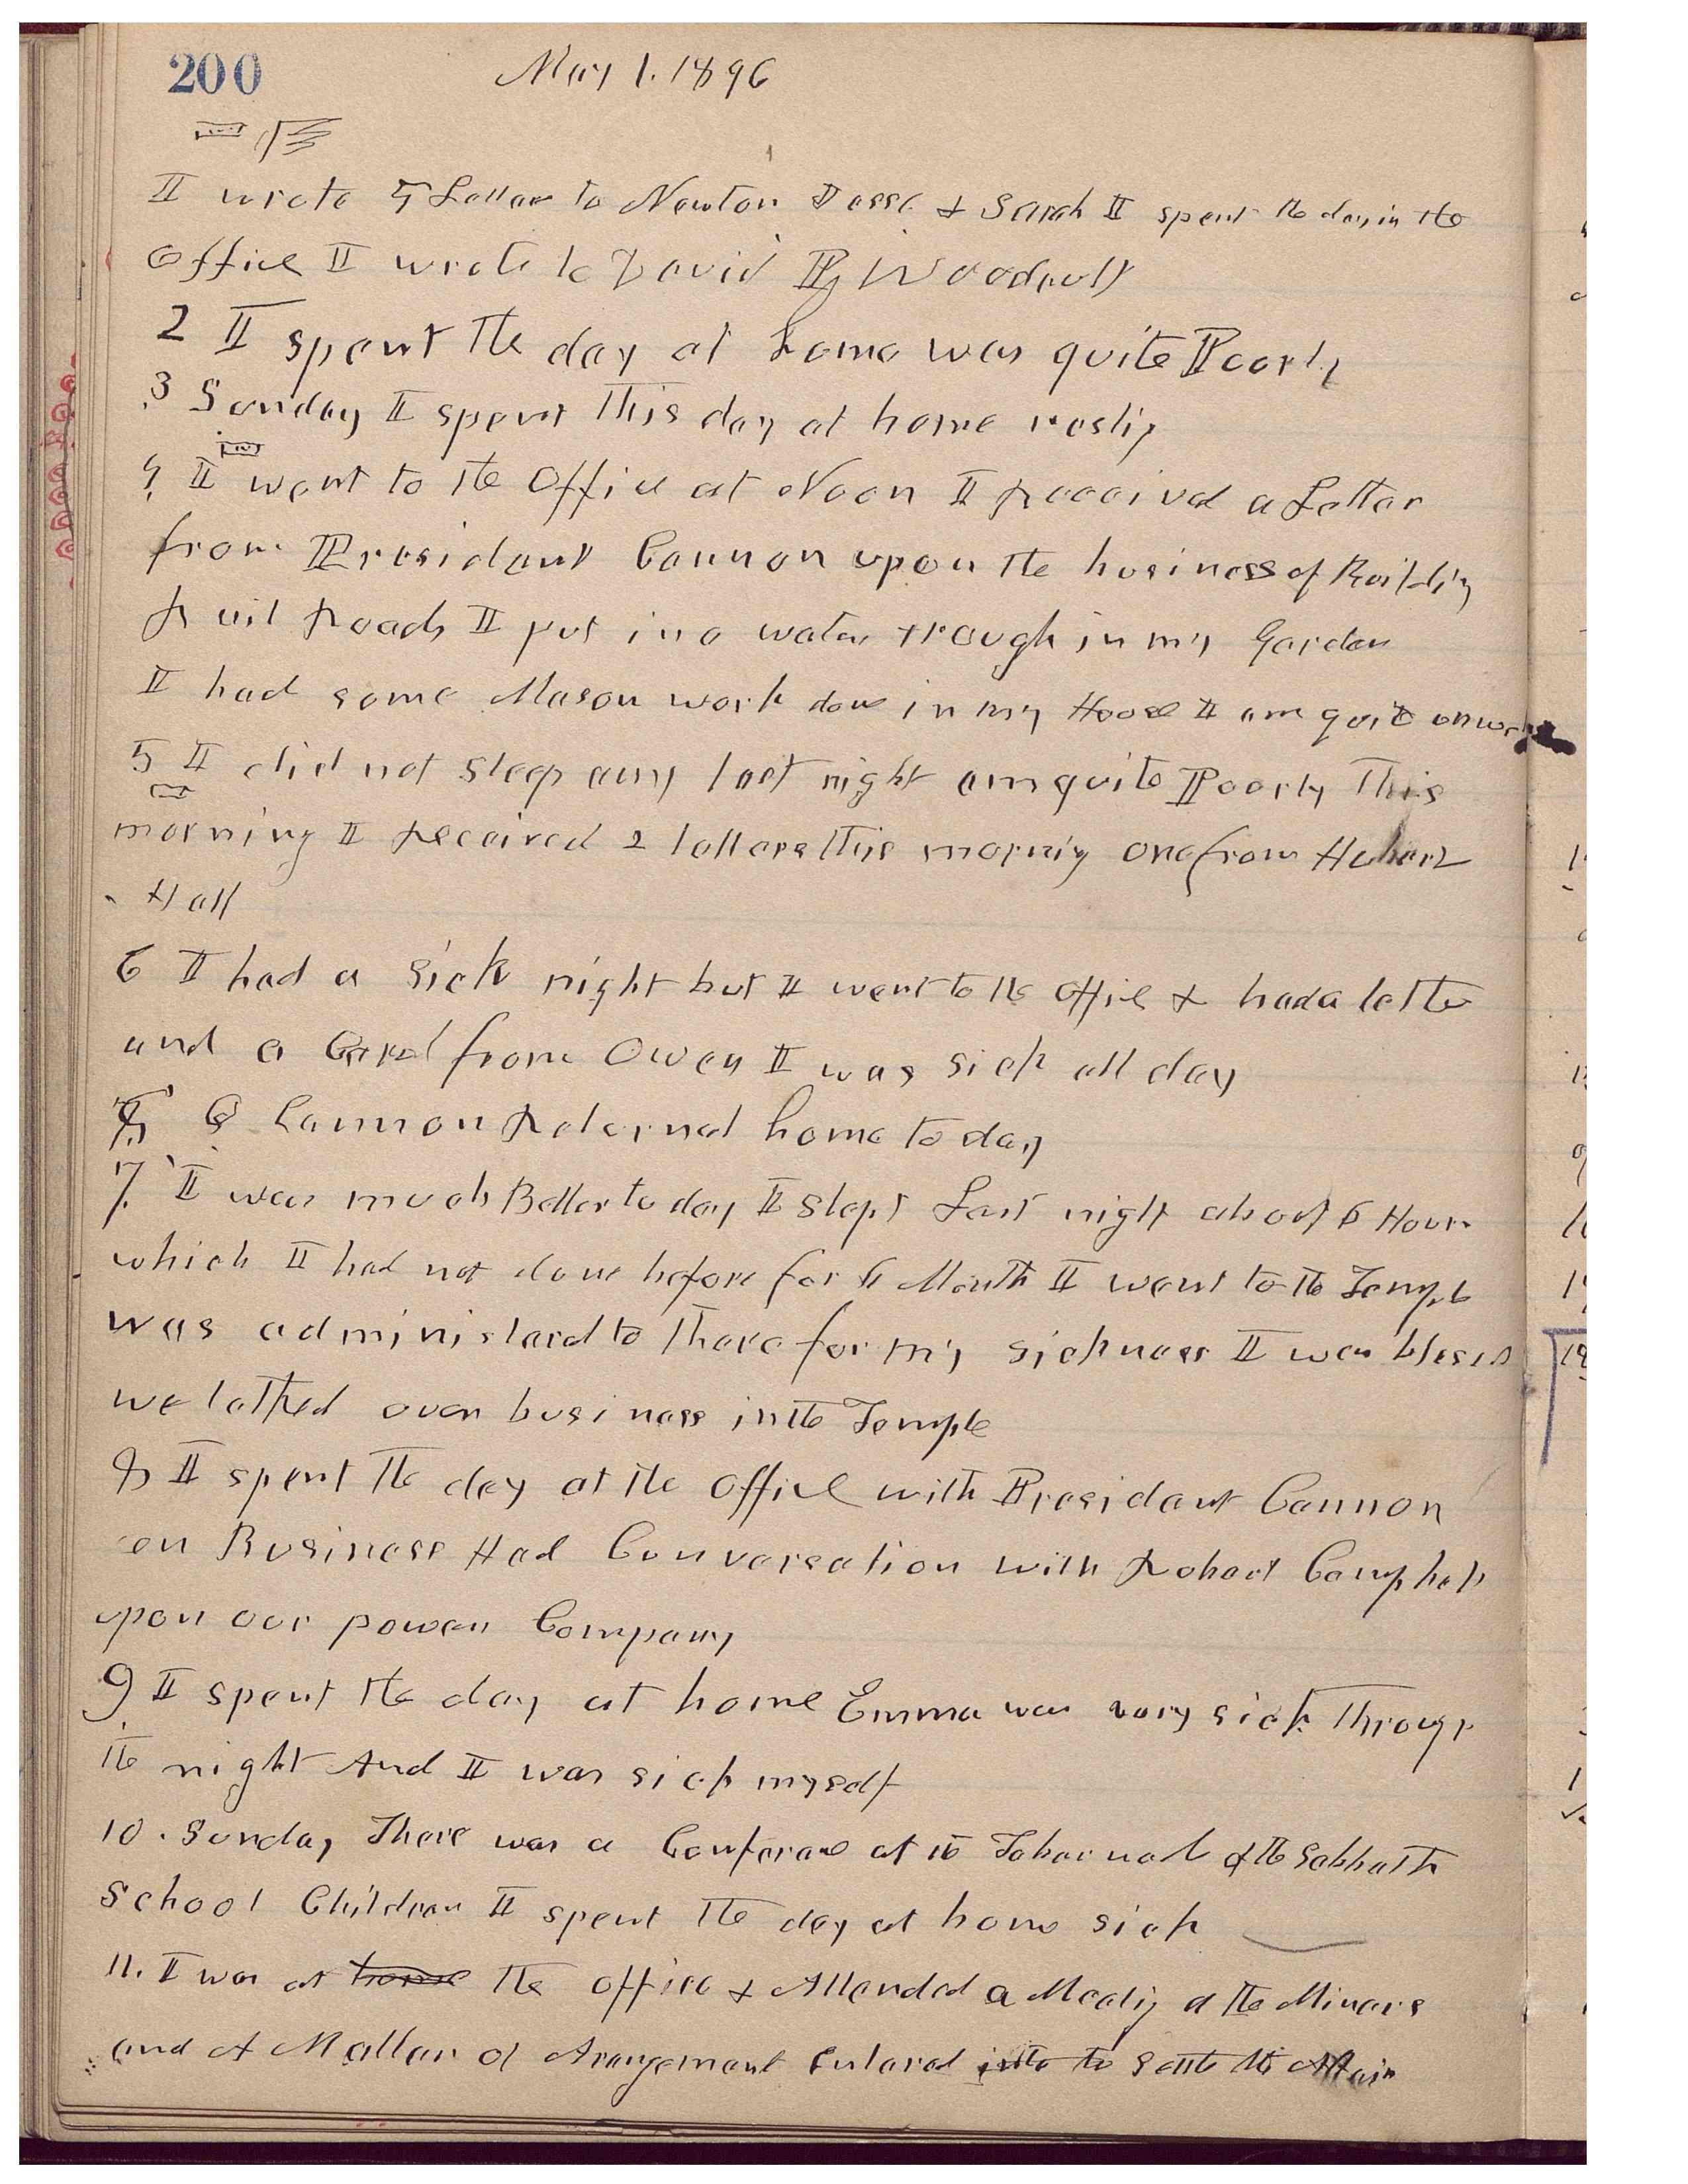 200 May 1. 1896
I wrote 4 Letters to Newton Jesse & Sarah I spent the day in the
office I wrote to David P Woodruff
2 I spent the day at home was quite Poorly
3 Sunday I spent This day at home resting
4 I went to the Office at Noon I Received a Letter
from President Cannon upon the business of Building
Rail Roads I put in a water trough in my Garden
I had some Mason work done in my House I am quite unwell
5 I did not Sleep any last night am quite Poorly This
morning I Received 2 letters this morning one from Hubert
Hall
6 I had a sick night but I went to the office & had a letter
and a Card from Owen I was sick all day
G Q Cannon Returned home to day
7. I was much Better to day I slept Last night about 6 Hours
which I had not done before for 6 Month I went to the Temple
was administered to There for my sickness I was blessed
we talked over business in the Temple
8 I spent the day at the office with President Cannon
on Business Had Conversation with Robert Campbell
upon our power Company
9 I spent the day at home Emma was very sick Through
the night And I was sick myself
10. Sunday There was a Conference at the Tabernacle of the Sabbath
School Children I spent the day at home sick
11. I was at home the office & Attended a Meeting of the Miners
and A Matter of Arangement Entered into to settle the Affair